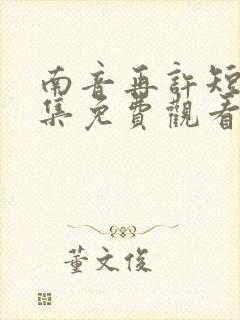 南音再許短
集免費觀看
董文俊